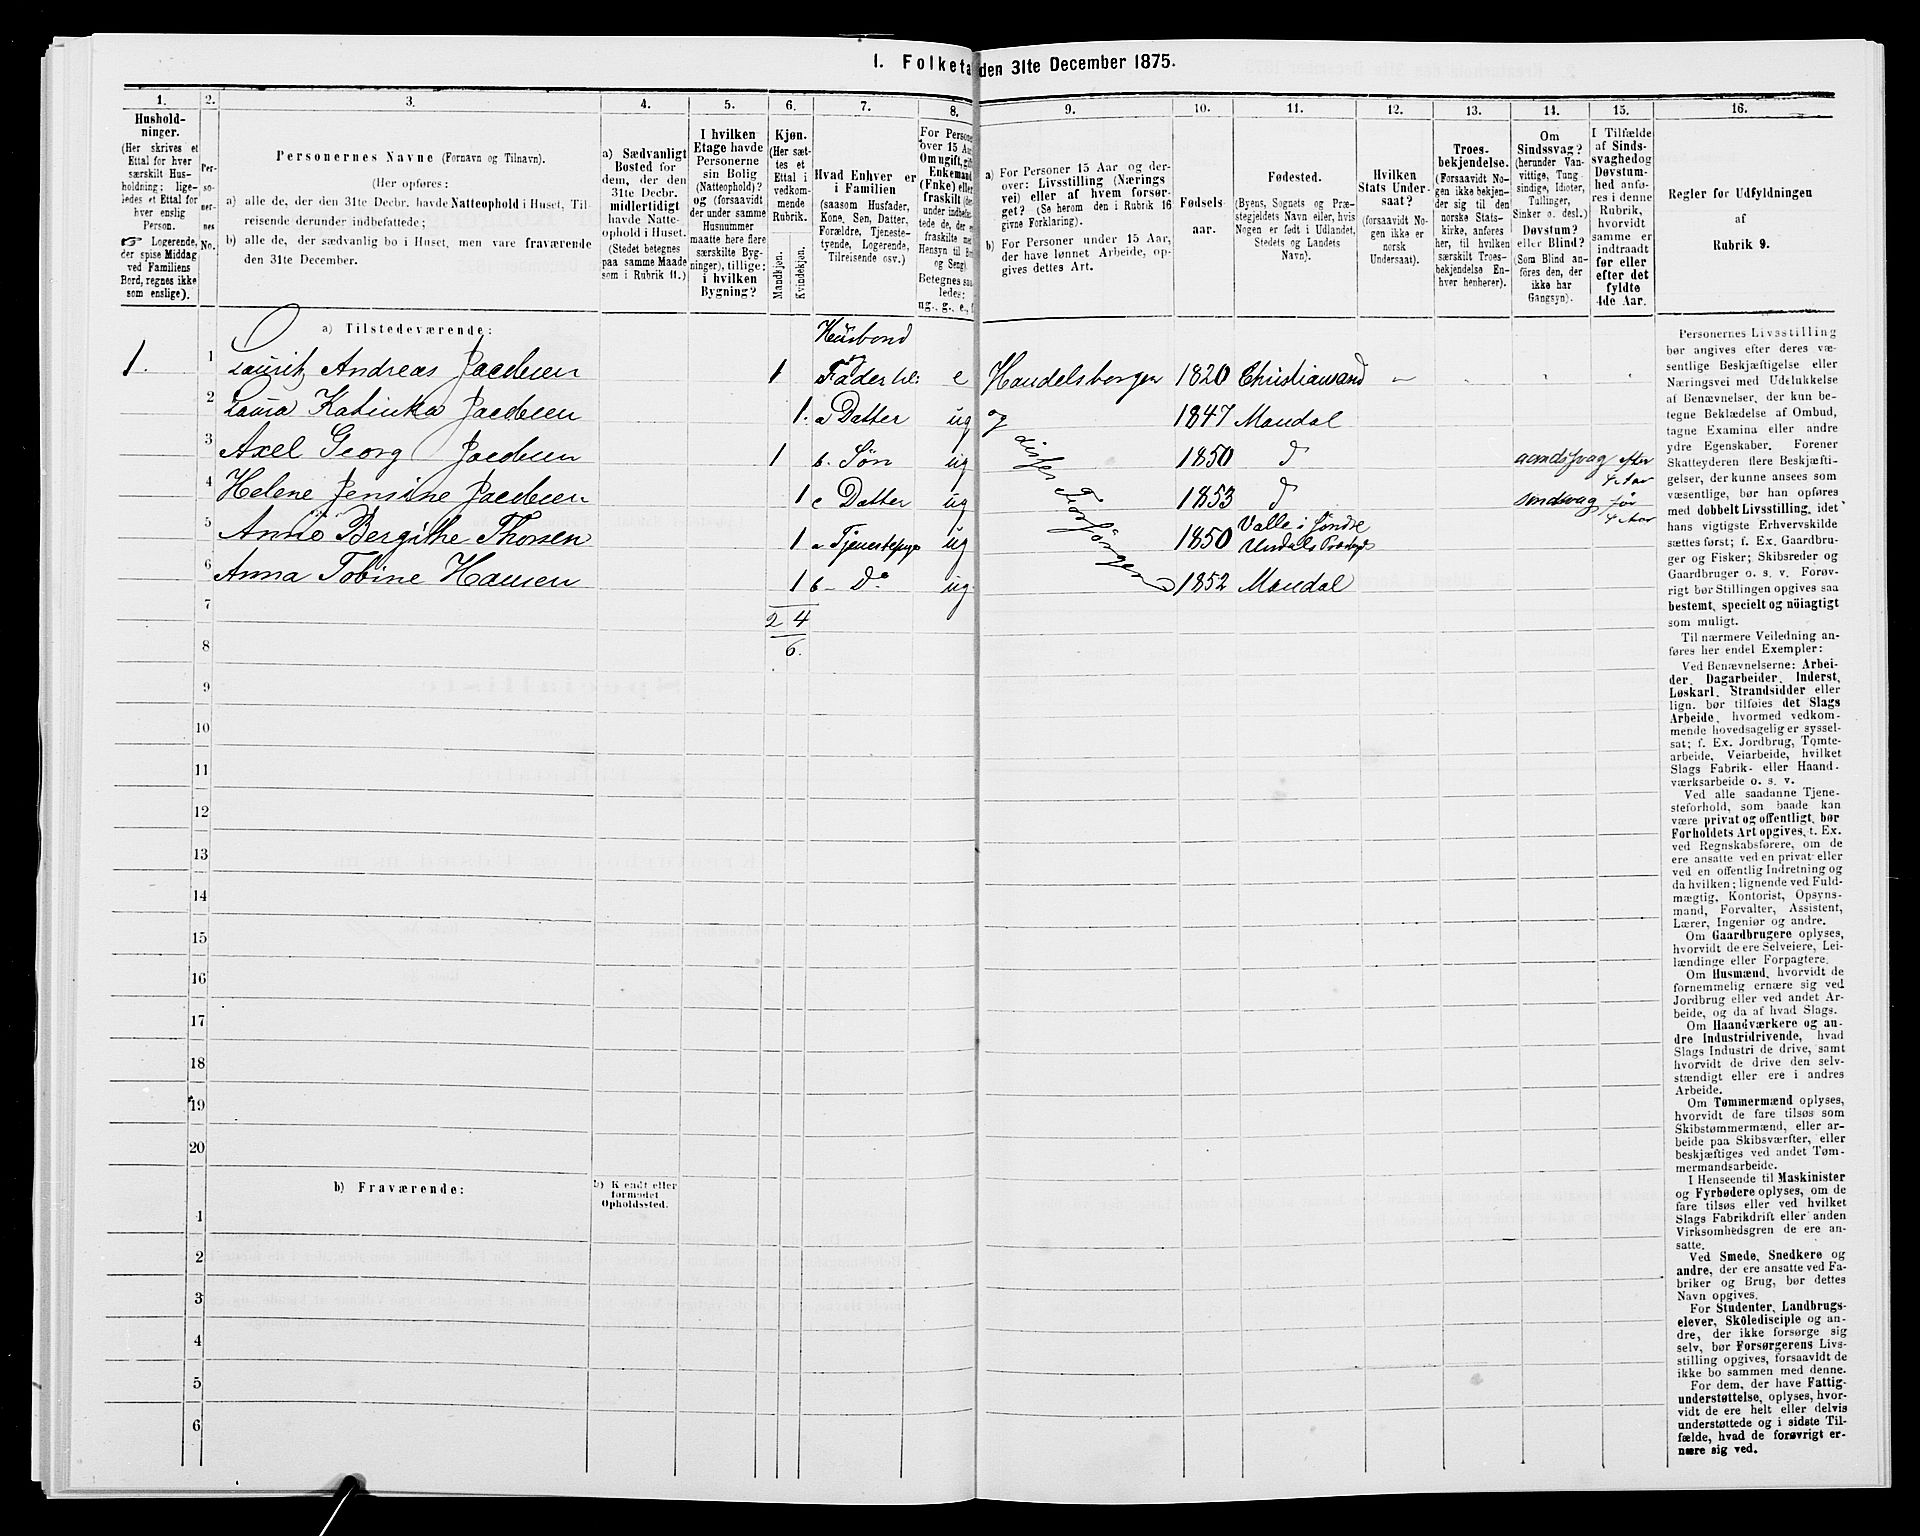 I. Folketa den 31te December 1875.
1. 2. 3. 4. 5. 6. 7. 8. 9. 10. 11. 12. 13. 14. 15. 16.
Hushold-
ninger.
(Her skrives et
Ettal for hver
særskilt Hus-
holdning; lige-
ledes et Ettal for
hver enslig
Person.
☞ Logerende,
der spise Middag
ved Familiens
Bord, regnes ikke
som enslige).
Per-
so-
ner-
nes
No.
Personernes Navne (Fornavn og Tilnavn).
(Her opføres:
a) alle de, der den 31te Decbr. havde Natteophold i Huset, Til-
reisende derunder indbefattede;
b) alle de, der sædvanlig bo i Huset, men vare fraværende
den 31te December.
a) Sædvanligt
Bosted for
dem, der den
31te Decbr.
midlertidigt
havde Natte-
ophold i Huset.
(Stedet betegnes
paa samme Maade
som i Rubrik 11.)
I hvilken
Etage havde
Personerne
sin Bolig
(Natteophold)?
og (forsaavidt
der under samme
Husnummer
maatte høre flere
særskilte Byg-
ninger), tillige:
i hvilken
Bygning?
Kjøn.
(Her sæt-
tes et
Ettal i
vedkom-
mende
Rubrik.
Mandkjøn.
Kvindekjøn.
Hvad Enhver er
i Familien
(saasom Husfader,
Kone, Søn, Datter,
Forældre, Tjeneste-
tyende, Logerende,
Tilreisende osv.)
For Persone
over 15 Aar
Om ugift, gift
Enkemand
(Enke) eller
fraskilt (de
under indbefat-
tede de, der er
fraskilte med
Hensyn til Bo
og Seng)
Betegnes saa
ledes:
ug., g., e.,
a) For Personer 15 Aar og der-
over: Livsstilling (Nærings
vei) eller af hvem forsør-
get? (Se herom den i Rubrik 16
givne Forklaring).
b) For Personer under 15 Aar,
der have lønnet Arbeide, op-
gives dettes Art.
Fødsels-
aar.
Fødested.
(Byens, Sognets og Præ-
stegjeldets Navn eller, hvis
Nogen er født i Udlandet,
Stedets og Landets
Navn).
Hvilken
Stats Under-
saat?
(forsaavidt No-
gen ikke er
norsk
Undersaat).
Troes-
bekjendelse.
(Forsaavidt No-
gen ikke bekjen-
der sig til den
norske Stats-
kirke, anføres
her, til hvilken
særskilt Troes-
bekjendelse En-
hver henhører).
Om
Sindssvag?
(herunder Van-
vittige, Tung
sindige, Idioter,
Tullinger,
Sinker o. desl.)
Døvstum?
eller Blind?
(Som Blind an-
føres den, der
ikke har
Gangsyn).
I Tilfælde
af Sinds-
svaghed og
Døvstum-
hed anfø-
res i denne
Rubrik,
hvorvidt
samme er
indtraadt
før eller
efter det
fyldte
4de Aar.
Regler for Udfyldningen
af
Rubrik 9.
a) Tilstedeværende:
Husbond
1. 1 Lauritz Andreas Jacobsen 1 Fader e Handelsborger 1820 Christiansand
2 Laura Katinka Jacobsen 1. a Datter ug og 1847 Mandal
3 Axel Georg Jacobsen 1 b. Søn ug disses 1850 d efter 4 Aar
4 Helene Jensine Jacobsen 1 c Datter ug 1853 d Sindsvag før 4 Aar
5 Anne Bergithe Thorsen 1 a Tjenestepige ug 1850 Valle i Søndre
Undals Præstegj
6 Anna Tobine Hansen 1 b - Do ug 1852 Mandal
7 2 4
8 6.
9
10
11
12
13
14
15
16
17
18
19
20
b) Fraværende:
b) Kjendt eller
formodet
Opholdssted.
1
2
3
4
5
6
Personernes Livsstilling
bør angives efter deres væ-
sentlige Beskjæftigelse eller
Næringsvei med Udelukkelse
af Benævnelser, der kun be-
tegne Beklædelse af Ombud,
tagne Examina eller andre
ydre Egenskaber. Forener
Skatteyderen flere Beskjæfti-
gelser, der kunne ansees som
væsentlige, bør han opføres
med dobbelt Livsstilling, idet
hans vigtigste Erhvervskilde
sættes først; f. Ex. Gaardbru-
ger og Fisker; Skibsreder og
Gaardbruger o. s. v. Forøv-
rigt bør Stillingen opgives saa
bestemt, specielt og nöiagtigt
som muligt.
Til nærmere Veiledning an-
føres her endel Exempler:
Ved Benævnelserne: Arbei-
der, Dagarbeider, Inderst,
Løskarl, Strandsidder eller
lign. bør tilføies det Slags
Arbeide, hvormed vedkom-
mende hovedsagelig er syssel-
sat; f. Ex. Jordbrug, Tømte-
arbeide, Veiarbeide, hvilket
Slags Fabrik- eller Haand-
værksarbeide o. s. v.
Ved alle saadanne Tjene-
steforhold, som baade kan
være privat og offentligt, bør
Forholdets Art opgives, t. Ex.
ved Regnskabsførere, om de
ere ansatte ved en privat eller
ved en offentlig Indretning og
da hvilken; lignende ved Fuld-
mægtig, Kontorist, Opsyns-
mand, Forvalter, Assistent,
Lærer, Ingeniør og andre.
Om Gaardbrugere oplyses,
hvorvidt de ere Selveiere, Lei-
lændinge eller Forpagtere.
Om Husmænd, hvorvidt de
fornemmelig ernære sig ved
Jordbrug eller ved andet Ar-
beide, og da af hvad Slags.
Om Haandværkere og an-
dre Industridrivende, hvad
Slags Industri de drive, samt
hvorvidt de drive den selv-
stændigt eller ere i andres
Arbeide.
Om Tømmermænd oplyses,
hvorvidt de fare tilsøs som
Skibstømmermænd, eller ar-
beide paa Skibsværfter, eller
beskjæftiges ved andet Tøm-
mermandsarbeide.
I Henseende til Maskinister
og Fyrbødere oplyses, om de
fare tilsøs eller ved hvilket
Slags Fabrikdrift eller anden
Virksomhedsgren de ere an-
satte.
Ved Smede, Snedkere og
andre, der ere ansatte ved Fa-
briker og Brug, bør dettes
Navn opgives.
For Studenter, Landbrugs-
elever, Skoledisciple og an-
dre, der ikke forsørge sig
selv, bør Forsørgerens Livs-
stilling opgives, forsaavidt de
ikke bo sammen med denne.
For dem, der have Fattig-
understøttelse, oplyses, hvor-
vidt de ere helt eller delvis
understøttede og i sidste Til-
fælde, hvad de forøvrigt er-
nære sig ved.